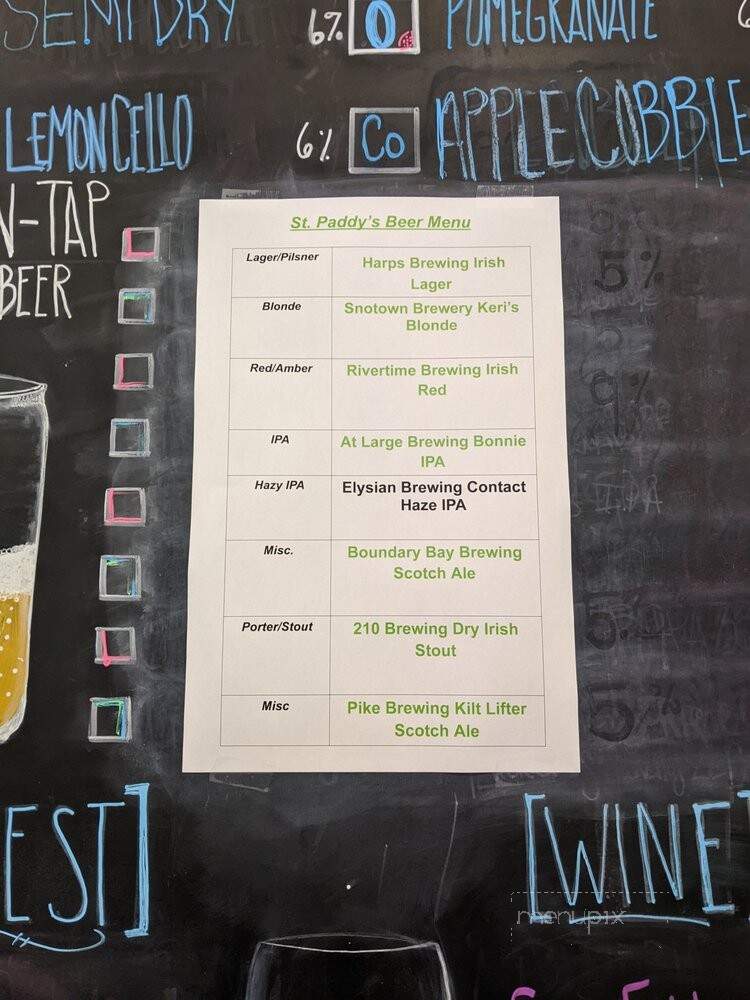 SEMI DRY
6% O POMEGRANATE
LEMONCELLO
6% Co APPLE COBBLE
N-TAP
BEER
St. Paddy's Beer Menu
Lager/Pilsner
Harps Brewing Irish
Lager
Blonde
Snotown Brewery Keri's
Blonde
Red/Amber
Rivertime Brewing Irish
Red
IPA
At Large Brewing Bonnie
IPA
Hazy IPA
Elysian Brewing Contact
Haze IPA
Misc.
Boundary Bay Brewing
Scotch Ale
Porter/Stout
210 Brewing Dry Irish
Stout
Misc
Pike Brewing Kilt Lifter
Scotch Ale
5%
9%
EST]
[WINE]
menupix